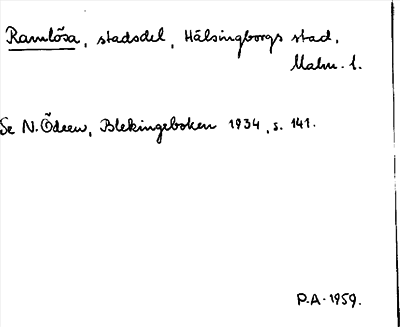 Ramlösa, stadsdel, Hälsingborgs stad,
Malm. l.
Se N. Ödeen, Blekingeboken 1934, s. 141.
P.A. 1959.